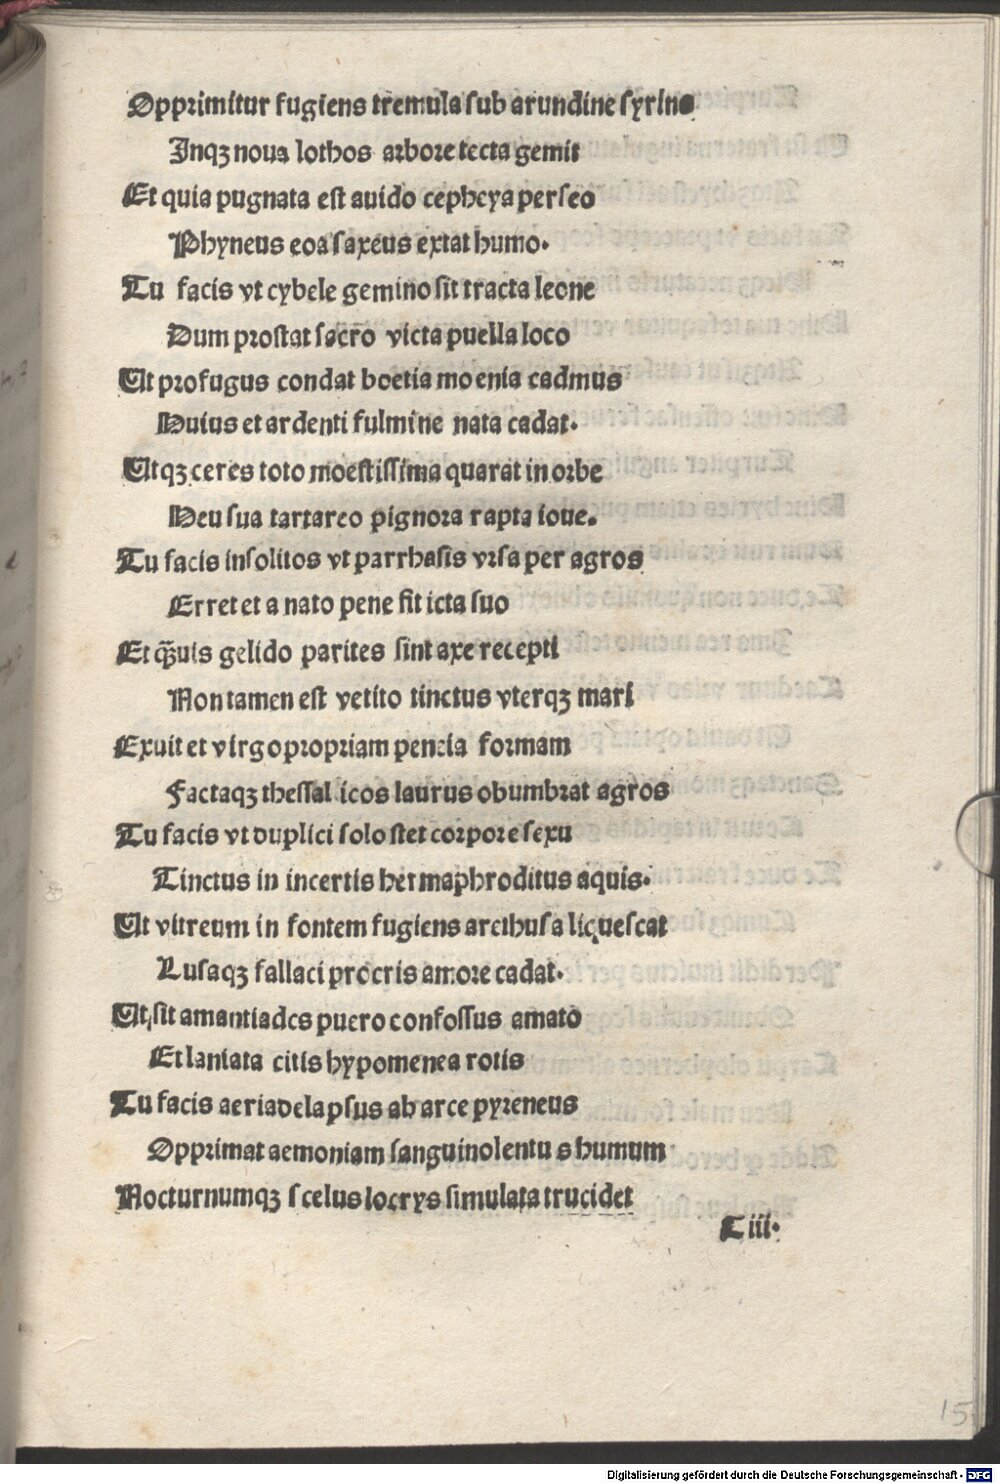 Opprimitur fugiens tremula sub arundine syrinx
Inqꝫ noua lothos arbore tecta gemit
Et quia pugnata est auido cepheya perseo
Phyneus eoa saxeus extat humo.
Tu facis vt cybele gemino sit tracta leone
Dum prostat sacro victa puella loco
Ut profugus condat boetia moenia cadmus
Huius et ardenti fulmine nata cadat.
Utqꝫ ceres toto moestissima quarat in orbe
Heu sua tartareo pignora rapta ioue.
Tu facis insolitos vt parrhasis vrsa per agros
Erret et a nato pene fit icta suo
Et q̃uis gelido parites sint axe recepti
Non tamen est vetito tinctus vterqꝫ mari
Exuit et virgo propriam peneia formam
Factaqꝫ thessalicos laurus obumbrat agros
Tu facis vt duplici solo stet corpore sexu
Tinctus in incertis hermaphroditus aquis.
Ut vitreum in fontem fugiens arethusa liquescat
Lusaqꝫ fallaci procris amore cadat.
Ut sit amantiades puero confossus amato
Et laniata citis hypomenea rotis
Tu facis aeria delapsus ab arce pyreneus
Opprimat aemoniam sanguinolentus humum
Nocturnumqꝫ scelus locrys simulata trucidet
C iii.
15
Digitalisierung gefördert durch die Deutsche Forschungsgemeinschaft - DFG